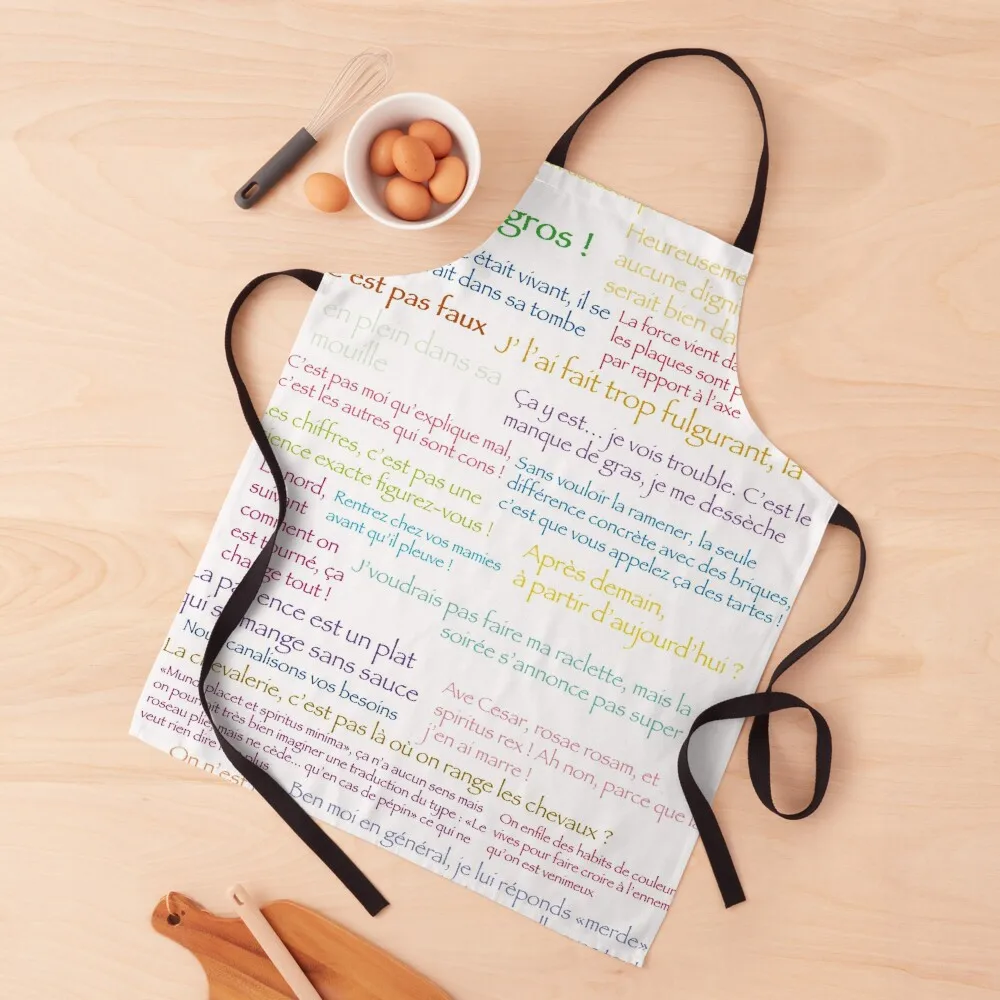 gros !
Heureuseme
aucune digni
serait bien da
était vivant, il se
ait dans sa tombe
est pas faux
La force vient da
les plaques sont p
par rapport à l'axe
en plein dans sa
mouille
J' l'ai fait trop fulgurant, là
C'est pas moi qu'explique mal,
c'est les autres qui sont cons !
Ça y est... je vois trouble. C'est le
manque de gras, je me dessèche
es chiffres, c'est pas une
ience exacte figurez-vous !
Sans vouloir la ramener, la seule
différence concrète avec des briques,
c'est que vous appelez ça des tartes !
nord,
suivant
comment on
est tourné, ça
change tout !
Rentrez chez vos mamies
avant qu'il pleuve !
Après demain,
à partir d'aujourd'hui ?
J'voudrais pas faire ma raclette, mais la
soirée s'annonce pas super
La patience est un plat
qui se mange sans sauce
Nous canalisons vos besoins
La chevalerie, c'est pas là où on range les chevaux ?
Ave Cesar, rosae rosam, et
spiritus rex ! Ah non, parce que
j'en ai marre !
placet et spiritus minima», ça n'a aucun sens mais
on pourrait très bien imaginer une traduction du type : «Le
roseau plie, mais ne cède... qu'en cas de pépin» ce qui ne
veut rien dire non plus
On enfile des habits de couleur
vives pour faire croire à l'ennem
qu'on est venimeux
On n'est
Ben moi en général, je lui réponds «merde»